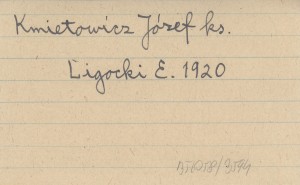 Kmietowicz Józef ks.
Ligocki E. 1920